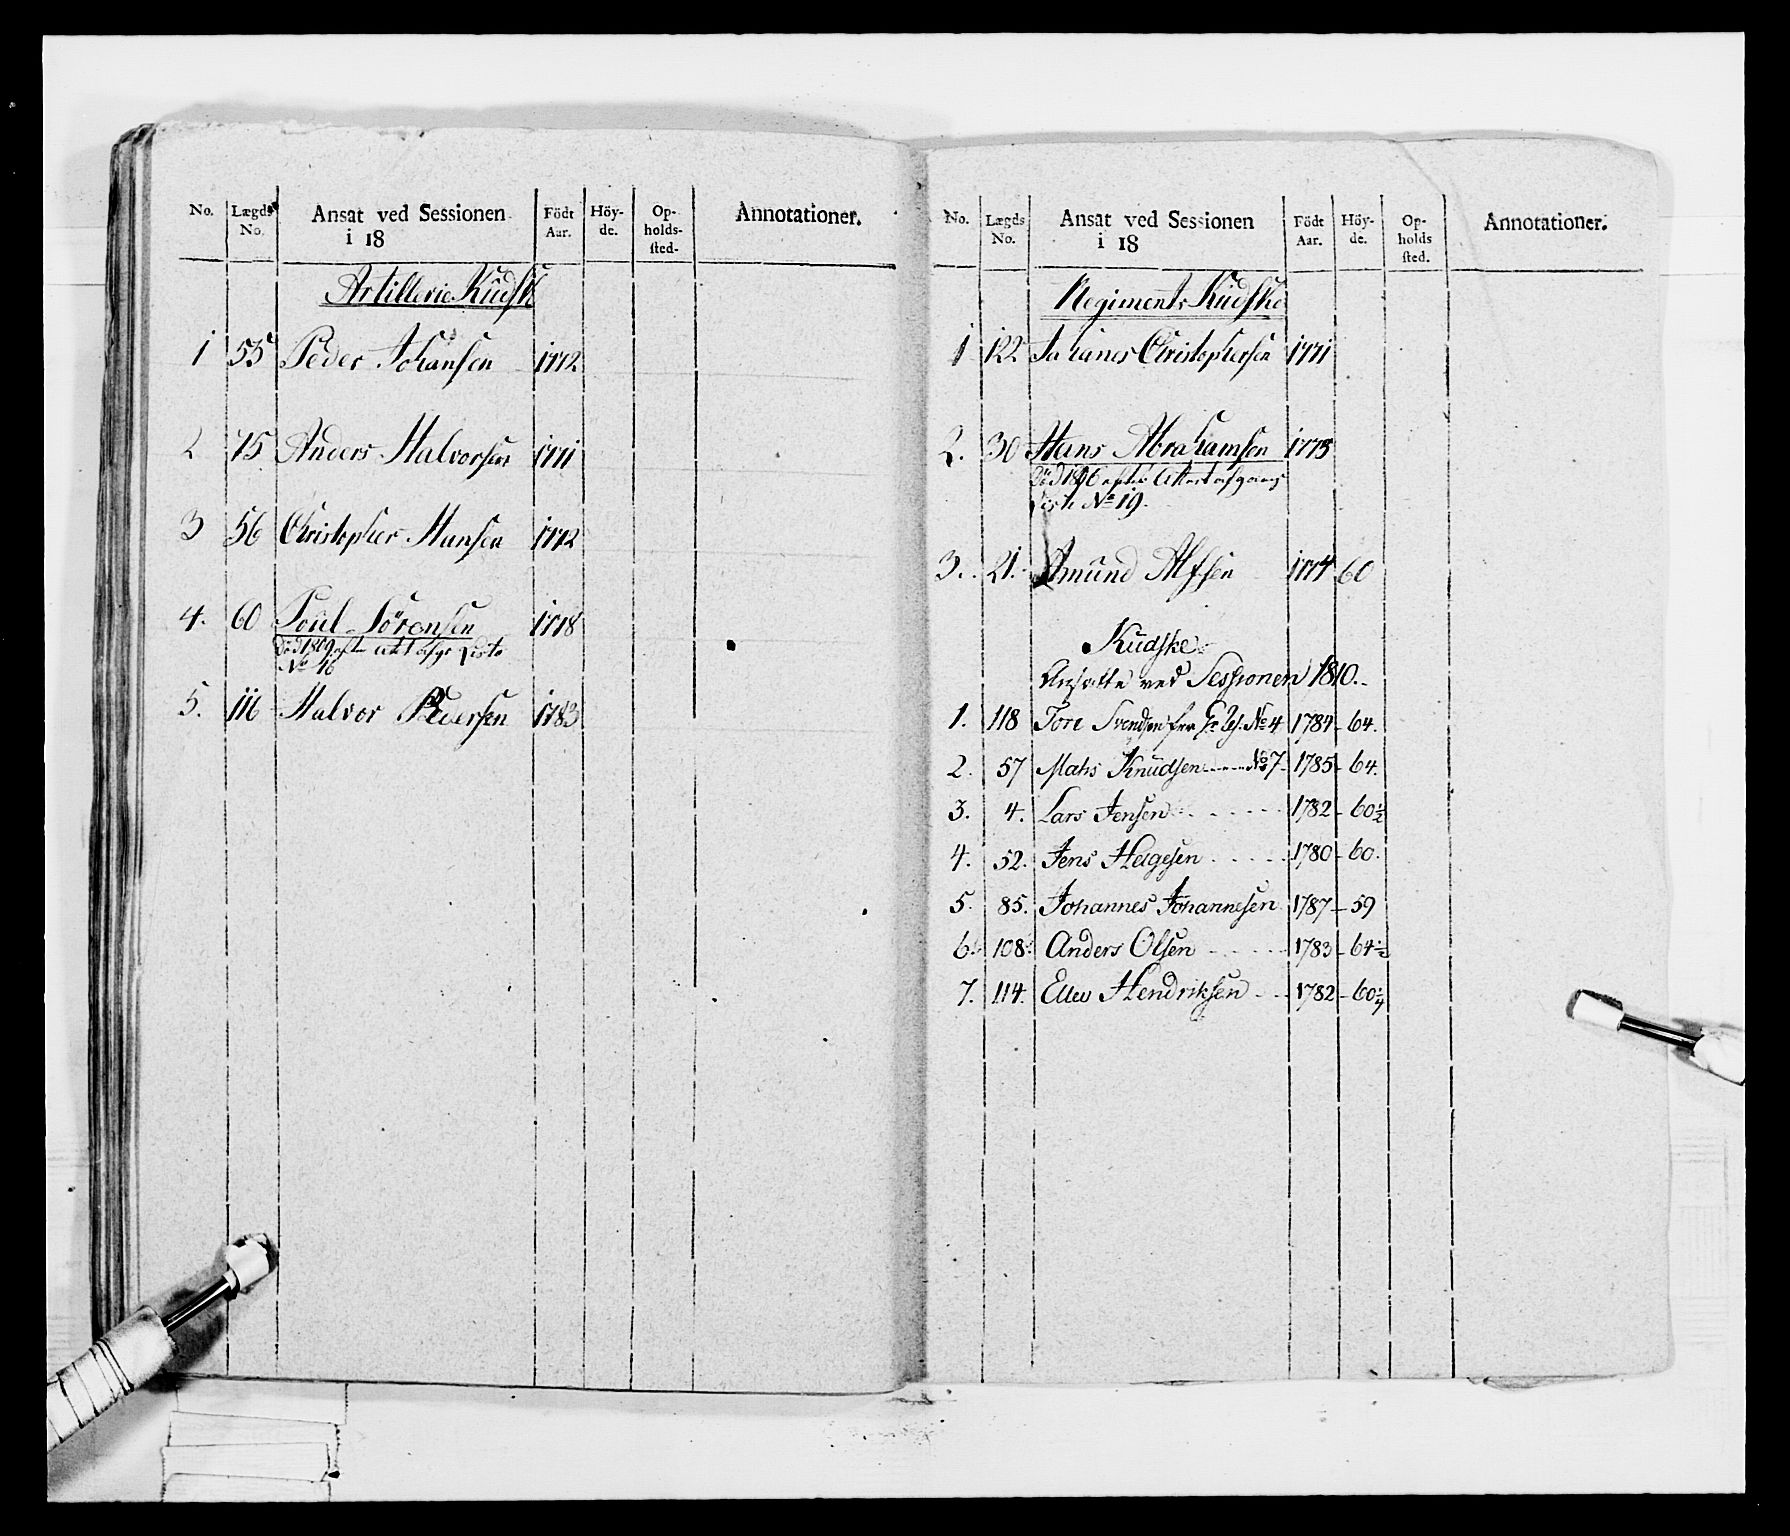 No. Lægds No. Ansat ved Sessionen i 18 Födt Aar. Höy-de. Op-holds-sted. Annotationer.
Artillerie Kudsk
1 55 Peder Johansen 1772
2 75 Anders Halvorsen 1771
3 56 Christopher Hansen 1772
4. 60 Poul Sörensen 1778
Död 1809 efter Att afgs Liste
No 16
5. 116 Halvor Pedersen 1783
No. Lægds No. Ansat ved Sessionen i 18 Födt Aar. Höy-de. Op-holds sted. Annotationer.
Regiments Kudske
1 122 Johanes Christophersen 1771
2. 30 Hans Abrahamsen 1775
Död 1806 efter Attest afgangs
Liste No 19.
3. 21. Amund Alfsen 1774 60
Kudske
Ansatte ved Sessionen 1810.
1. 118 Tore Svendsen fra No 4 1784 - 64.
2. 57 Mats Knudsen No 7 1785 - 64.
3. 4. Lars Jensen 1782 - 60½
4. 52. Jens Helgesen 1780 - 60.
5. 85. Johannes Johannesen 1787 - 59
6. 108. Anders Olsen 1783 - 64½
7. 114. Ellev Hendriksen 1782 - 60¼